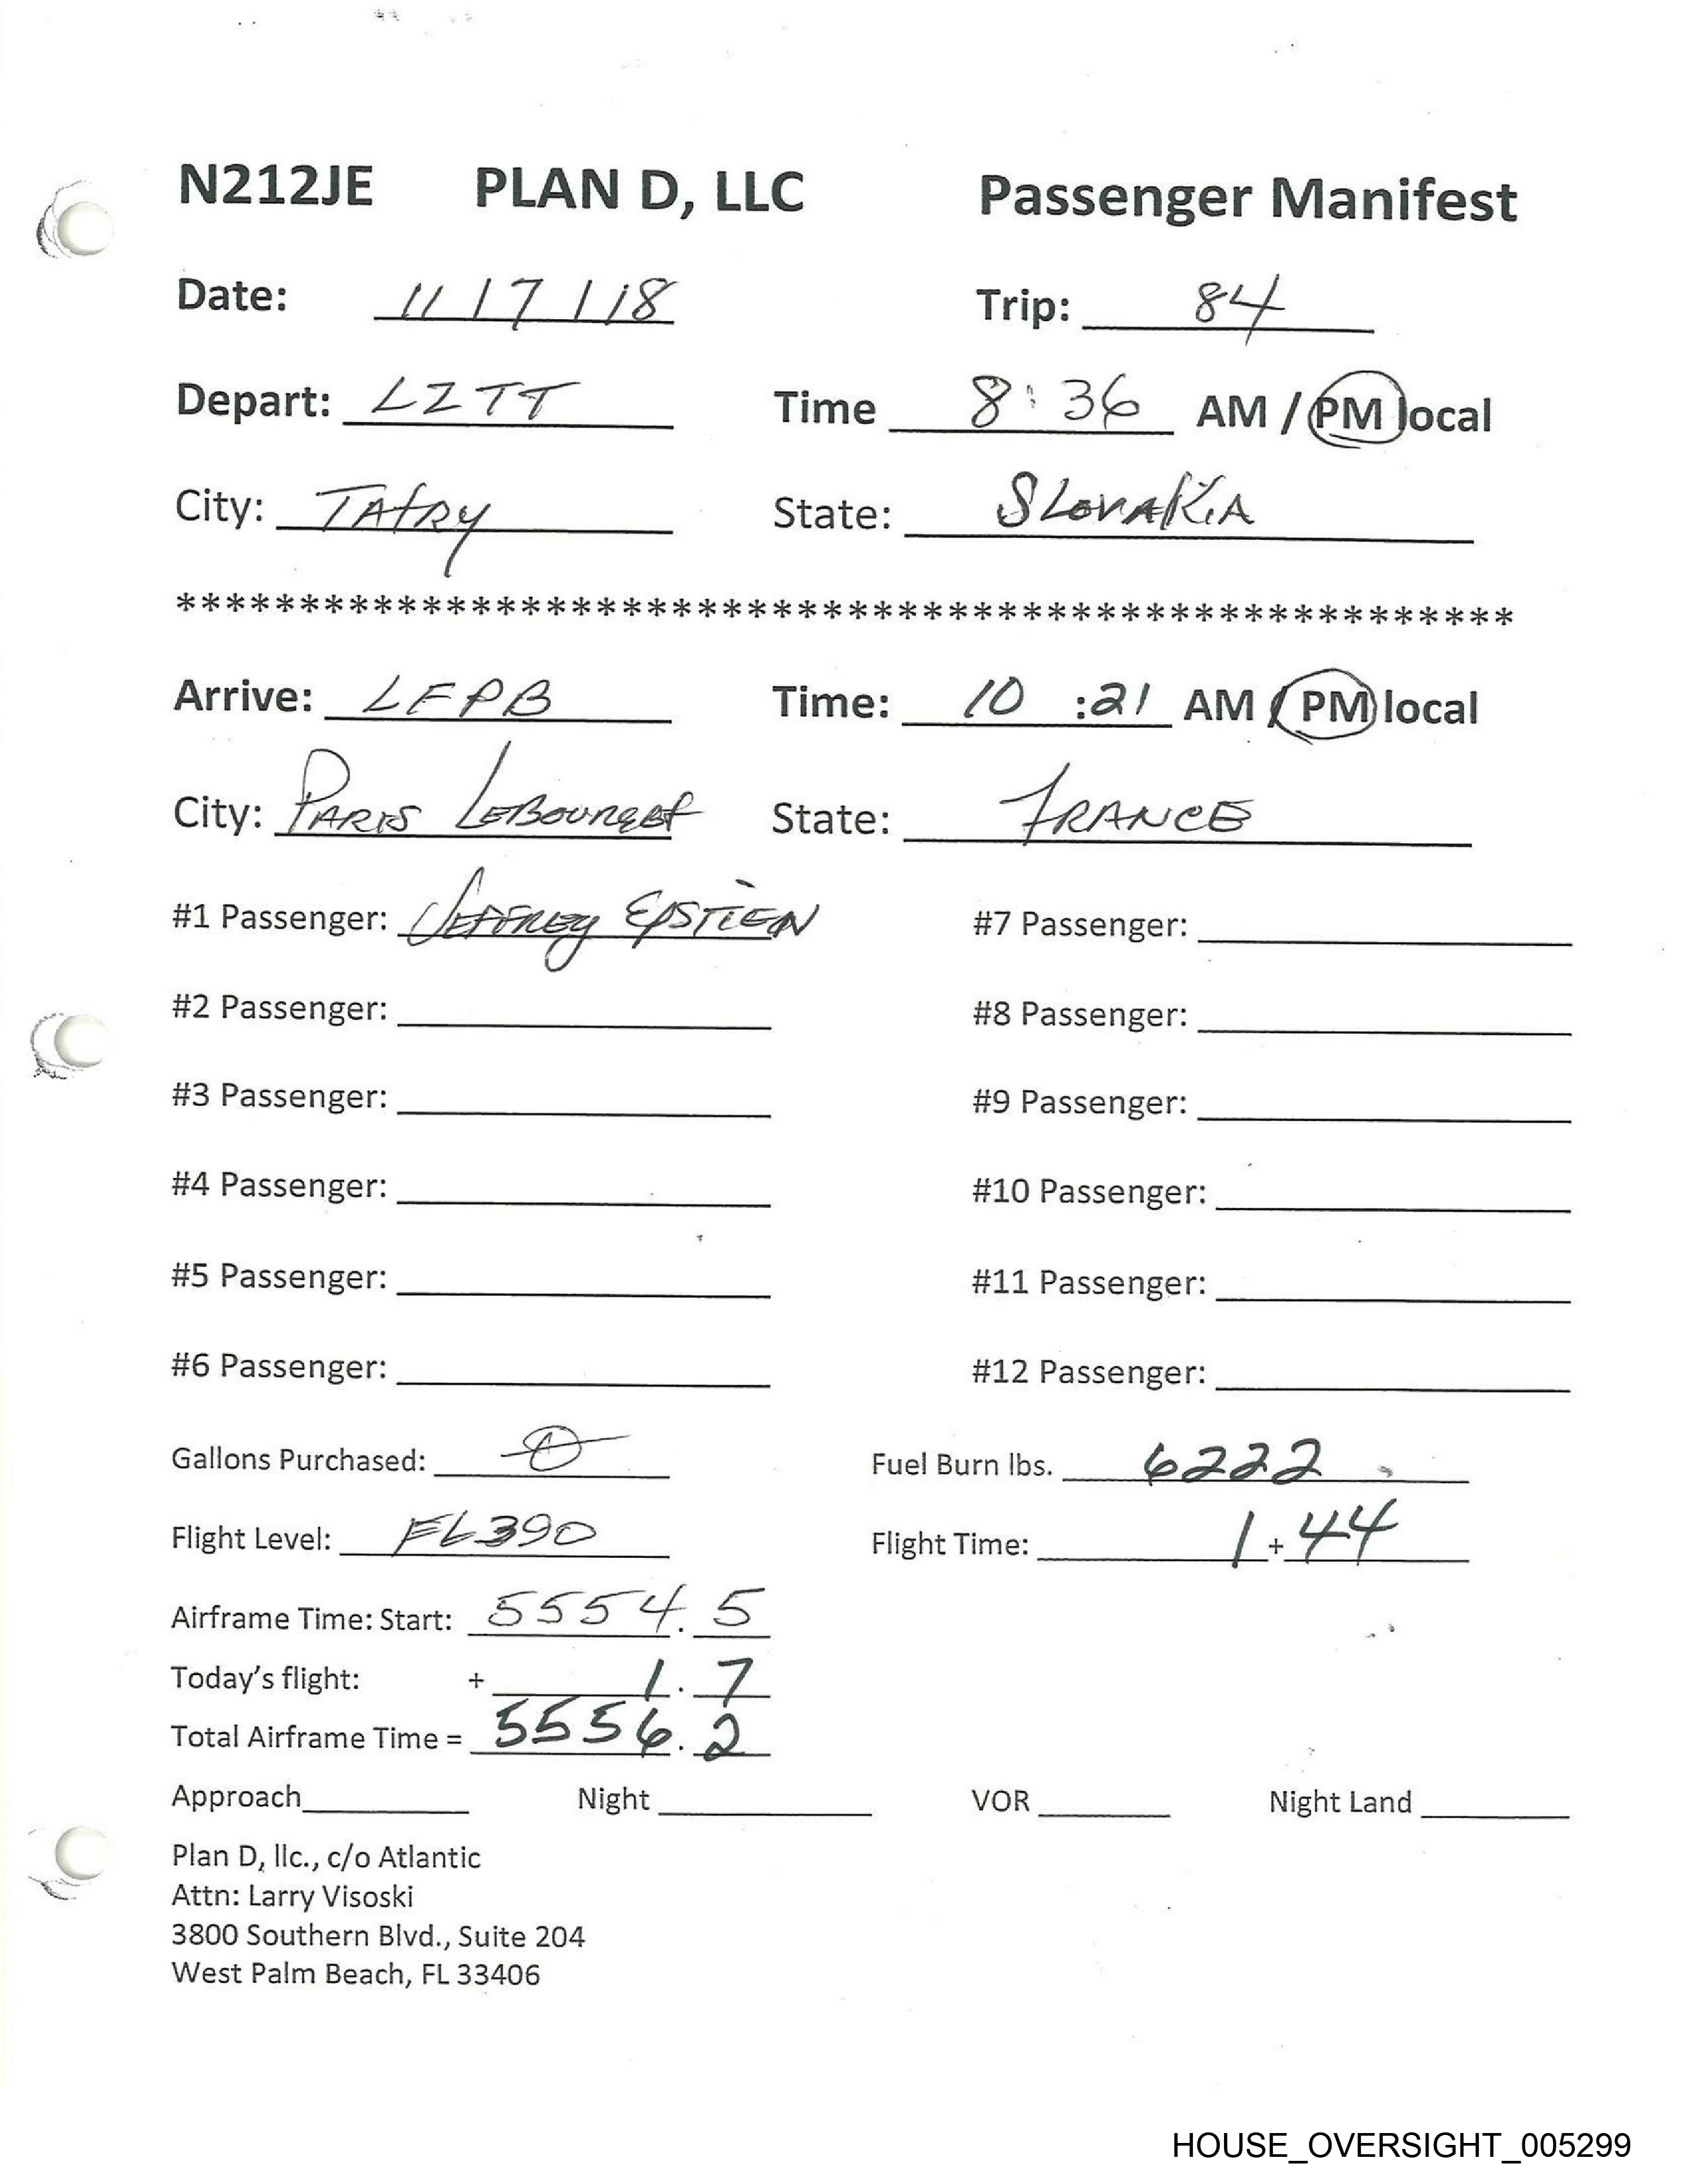 N212JE PLAN D, LLC Passenger Manifest
Date: 11 / 7 / 18 Trip: 84
Depart: LZTT Time 8:36 AM / PM local
City: TATRY State: SLOVAKIA
******************************************************
Arrive: LFPB Time: 10 :21 AM / PM local
City: PARIS LEBOURGET State: FRANCE
#1 Passenger: JEFFREY EPSTIEN #7 Passenger:
#2 Passenger: #8 Passenger:
#3 Passenger: #9 Passenger:
#4 Passenger: #10 Passenger:
#5 Passenger: #11 Passenger:
#6 Passenger: #12 Passenger:
Gallons Purchased: 0 Fuel Burn lbs. 6222
Flight Level: FL390 Flight Time: 1 + 44
Airframe Time: Start: 5554.5
Today's flight: + 1.7
Total Airframe Time = 5556.2
Approach Night VOR Night Land
Plan D, llc., c/o Atlantic
Attn: Larry Visoski
3800 Southern Blvd., Suite 204
West Palm Beach, FL 33406
HOUSE_OVERSIGHT_005299